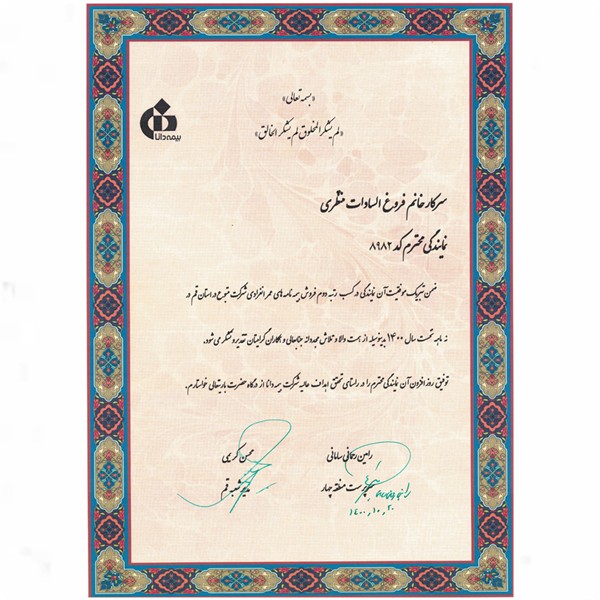 «بسمه تعالی»
«لم یشکر المخلوق لم یشکر الخالق»
بیمه دانا
سرکار خانم فروغ السادات منتظری
نمایندگی محترم کد ۸۹۸۲
ضمن تبریک موفقیت آن نمایندگی در کسب رتبه دوم فروش بیمه نامه های عمر انفرادی شرکت متبوع در استان قم در
نه ماهه نخست سال ۱۴۰۰ بدینوسیله از همت والا و تلاش مجدانه جنابعالی و همکاران گرامیتان تقدیر و تشکر می شود.
توفیق روز افزون آن نمایندگی محترم را در راستای تحقق اهداف عالیه شرکت بیمه دانا از درگاه حضرت باریتعالی خواستارم.
رامین رحمانی سامانی
سرپرست منطقه چهار
۱۴۰۰,۱۰,۲۰
محسن کریمی
مدیر شعبه قم